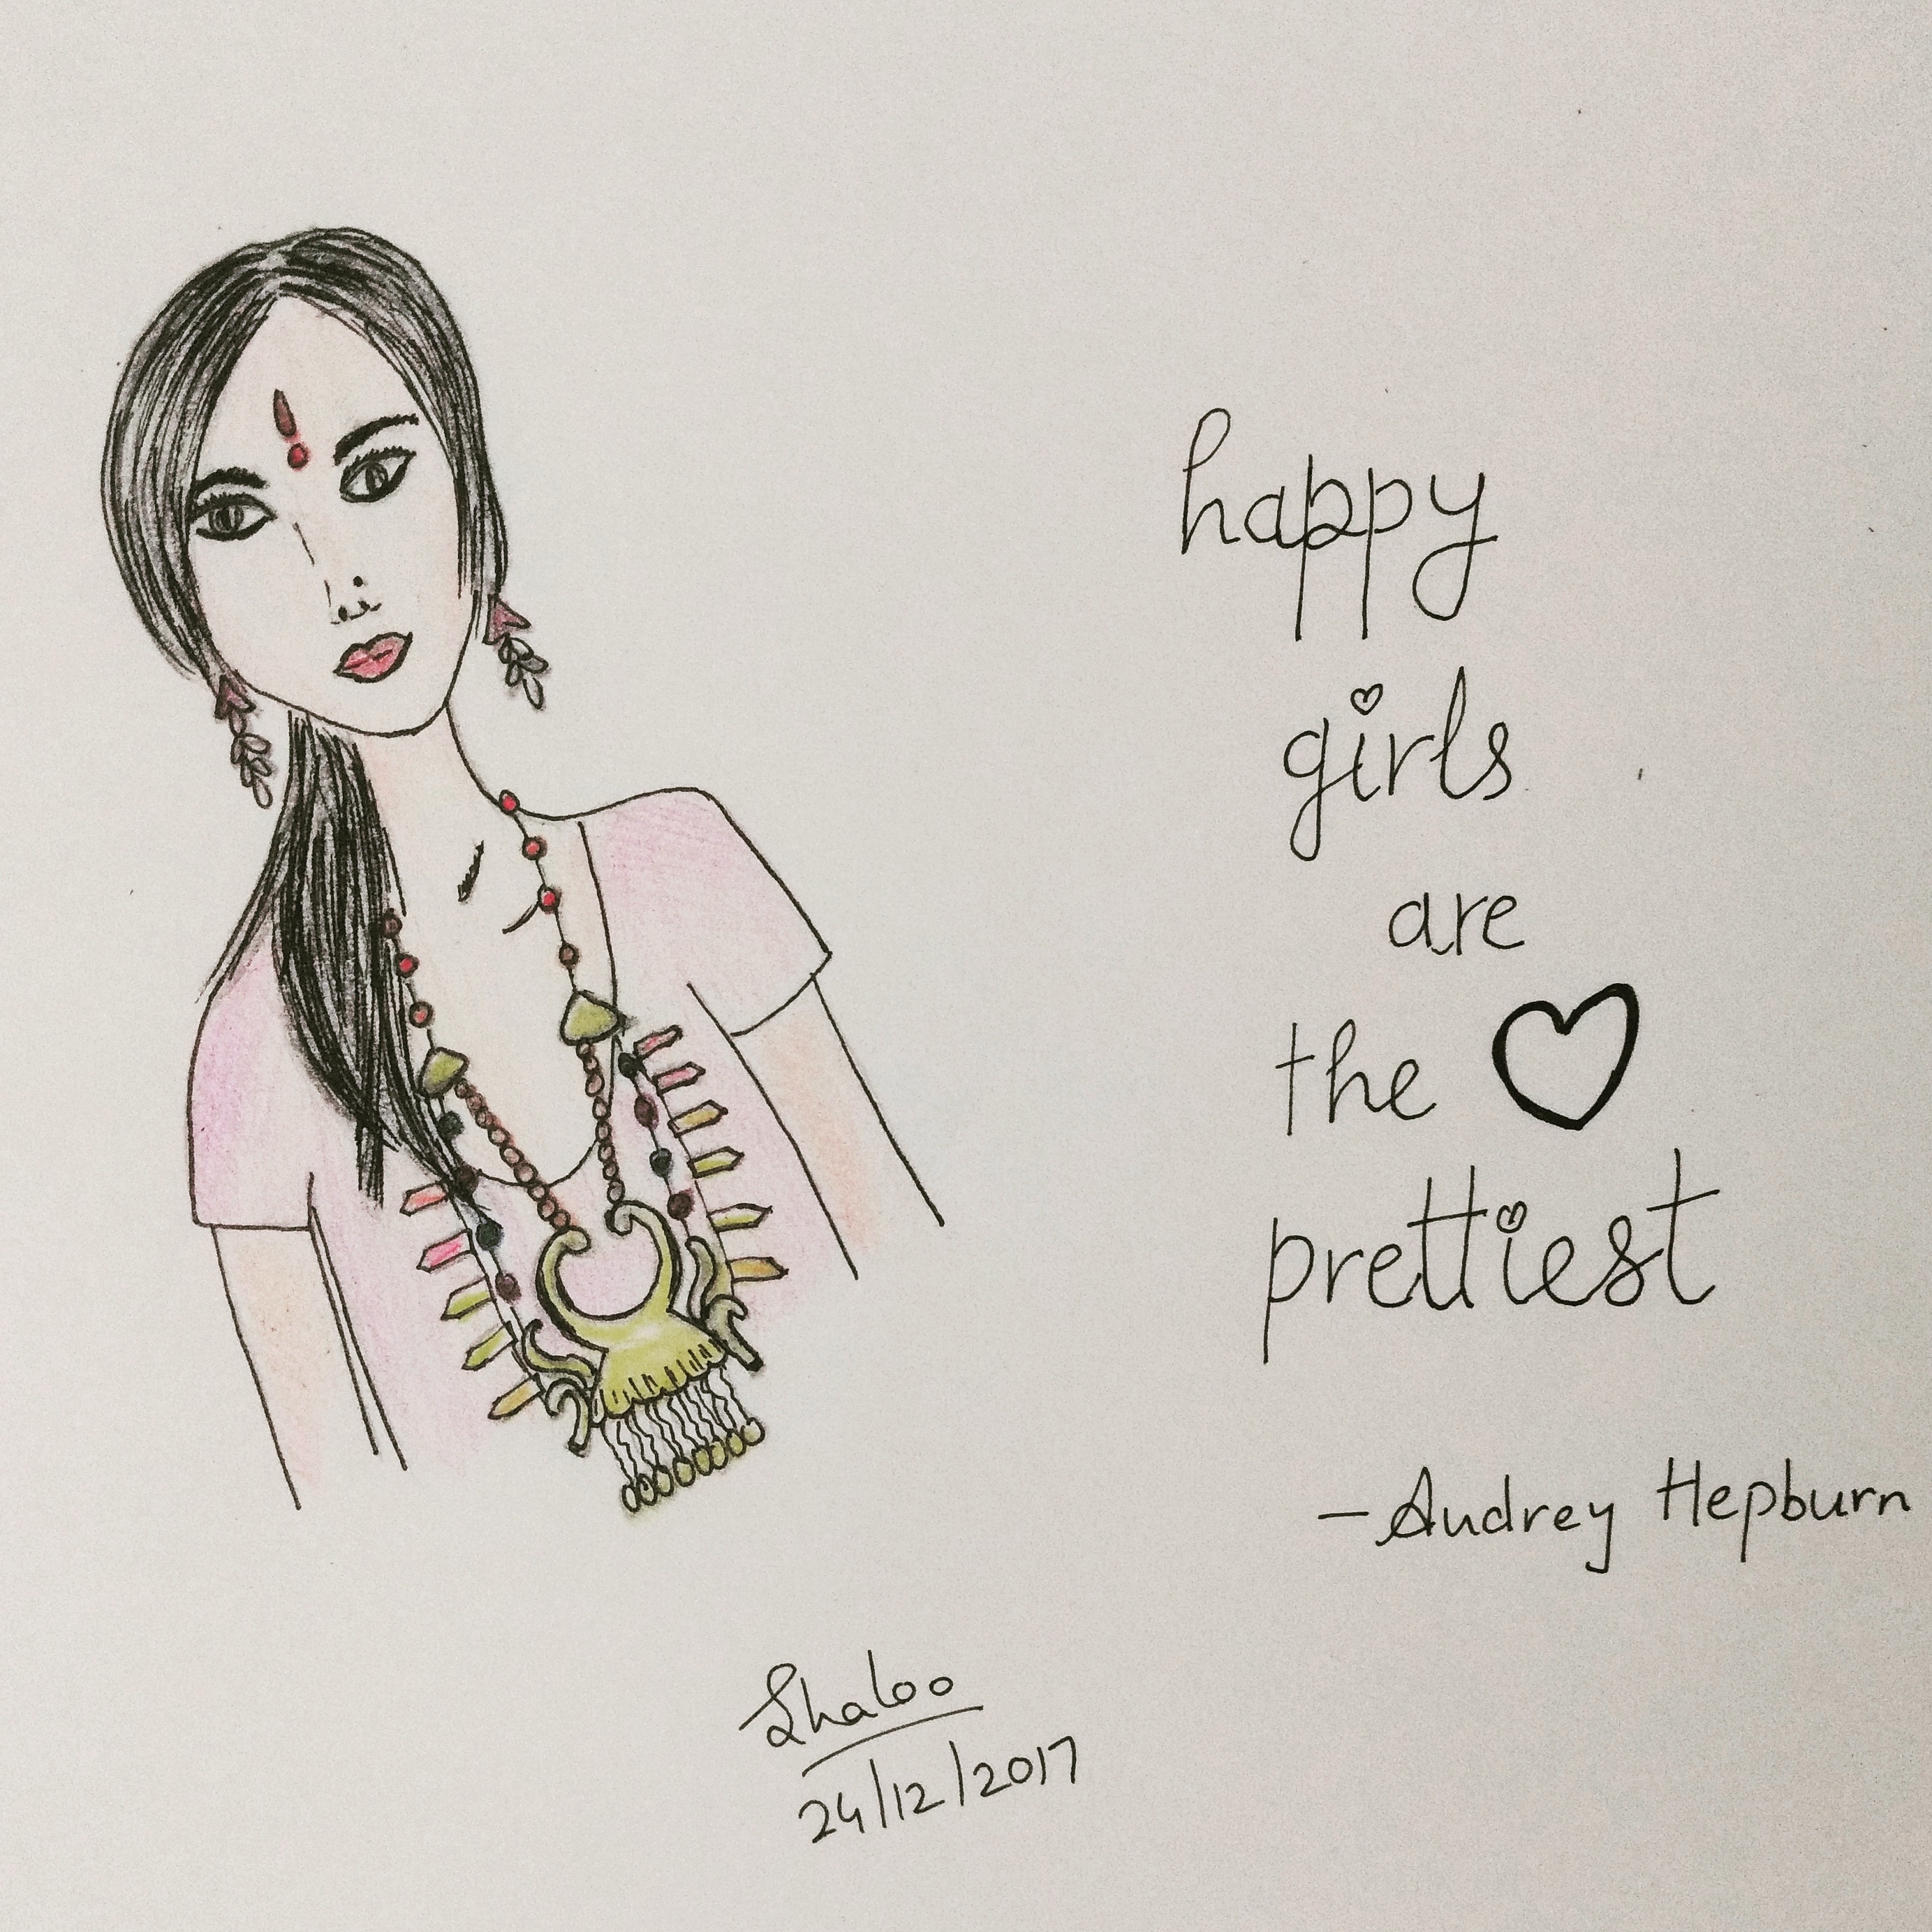 happy
girls
are
the ♡
prettiest
- Audrey Hepburn
Shaloo
24/12/2017